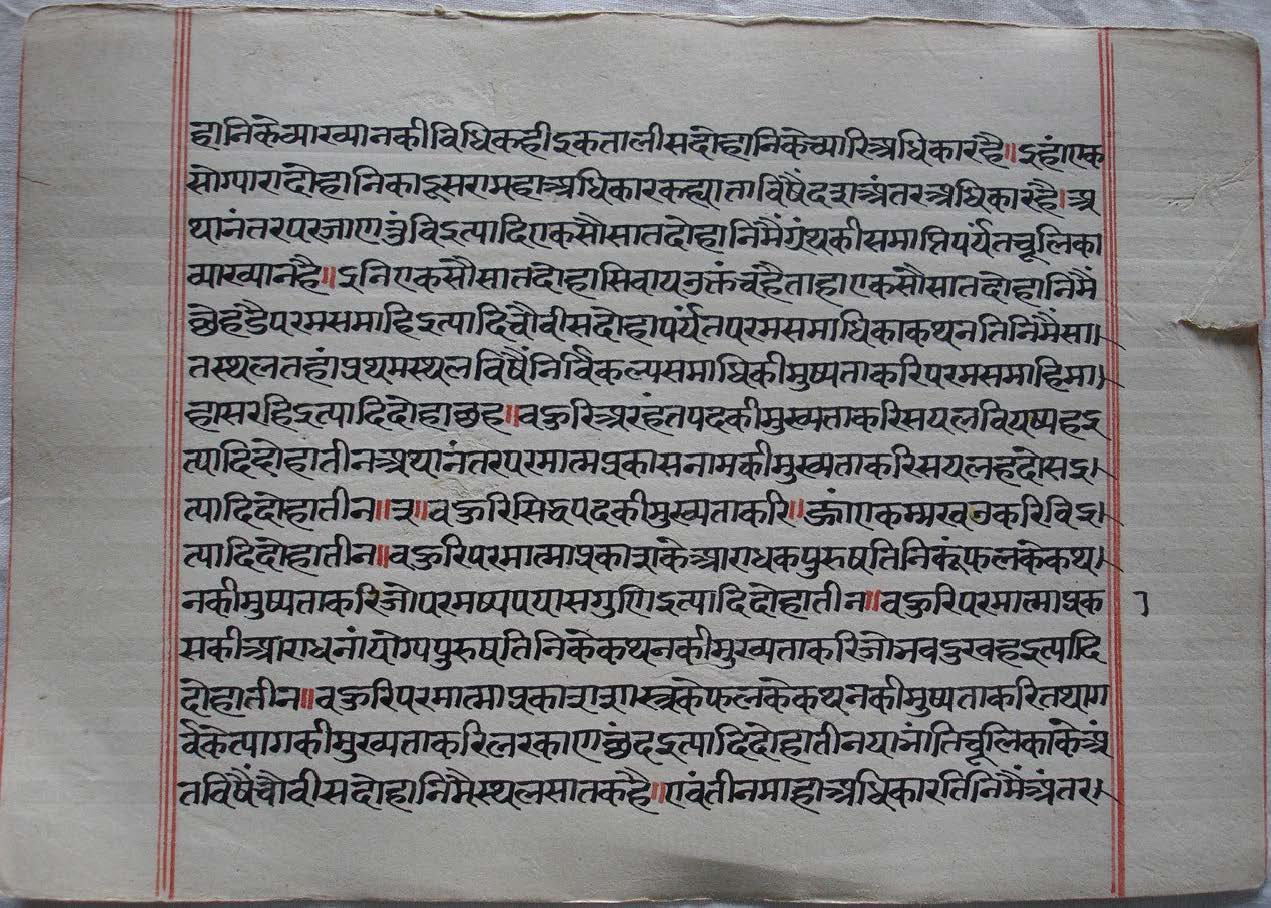 हानिकेव्याख्यानकीविधिकहीइकतालीसदोहानिकेच्यारिअधिकारहै॥इहांएक
सोग्यारादोहानिकादूसरामहाअधिकारकह्याताविषैंदशअंतरअधिकारहै।अ
थानंतरपरजाणतुंविइत्यादिएकसौसातदोहानिमैंग्रंथकीसमाप्तिपर्यंतचूलिका
व्याख्यानहै॥इनिएकसौसातदोहासिवाय
छेहंडैपरमसमाहिइत्यादिचौवीसदोहापर्यंतपरमसमाधिकाकथनतिनिमैंसा
तस्थलतहांप्रथमस्थलविषैंनिर्विकल्पसमाधिकीमुष्यताकरिपरमसमाहिमा
हासरहिइत्यादिदोहाछह॥बहुरिअरहंतपदकीमुख्यताकरिसयलवियप्पहइ
त्यादिदोहातीनअथानंतरपरमात्मप्रकासनामकीमुख्यताकरिसयलहदोसइ
त्यादिदोहातीन॥३॥बहुरिसिद्धपदकीमुख्यताकरि॥झांएकम्मखउकरिविइ
त्यादिदोहातीन॥बहुरिपरमात्माप्रकाशकेआराधकपुरुषतिनिकूंफलकेकथ
नकीमुष्यताकरिजोपरमप्पपयासगुणिइत्यादिदोहातीन॥बहुरिपरमात्माप्रक
सकीआराधनांयोग्यपुरुषतिनिकेकथनकीमुख्यताकरिजोभवदुखहइत्यादि
दोहातीन॥बहुरिपरमात्माप्रकाशशास्त्रकेफलकेकथनकीमुष्यताकरितथाग
र्वकेत्यागकीमुख्यताकरिलरकाणछंदइत्यादिदोहातीनयाभांतिचूलिकाकेअं
तविषैंचौवीसदोहानिमैस्थलसातकहै॥एवंतीनमाहाअधिकारतिनिमैंअंतर